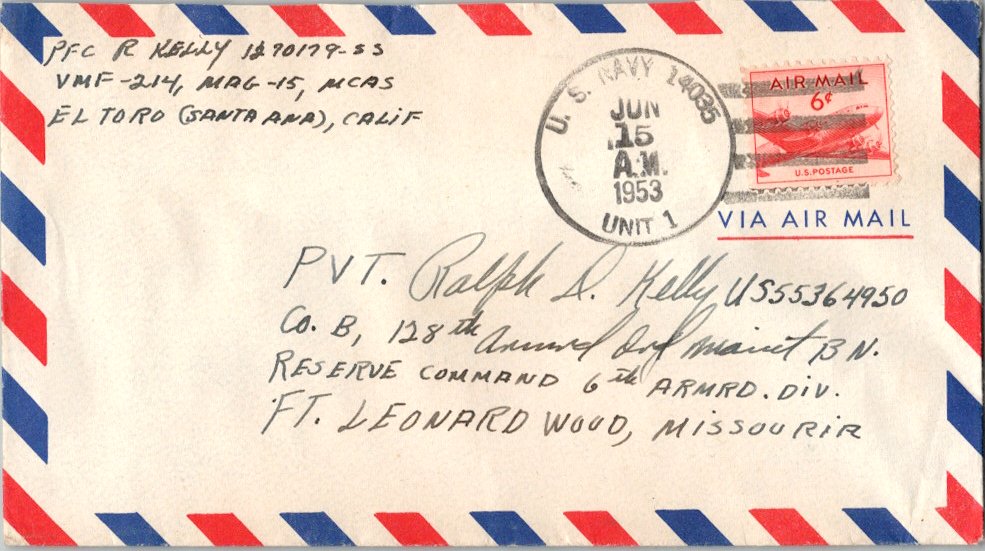 PFC R KELLY 1370179-SS
VMF-214, MAG-15, MCAS
EL TORO (SANTA ANA), CALIF
U. S. NAVY 14035
JUN
15
A.M.
1953
UNIT 1
AIR MAIL
6¢
U.S. POSTAGE
VIA AIR MAIL
PVT. Ralph D. Kelly US55364950
Co. B, 128th Armrd Ord Maint BN.
RESERVE COMMAND 6th ARMRD. DIV.
FT. LEONARD WOOD, MISSOURIR